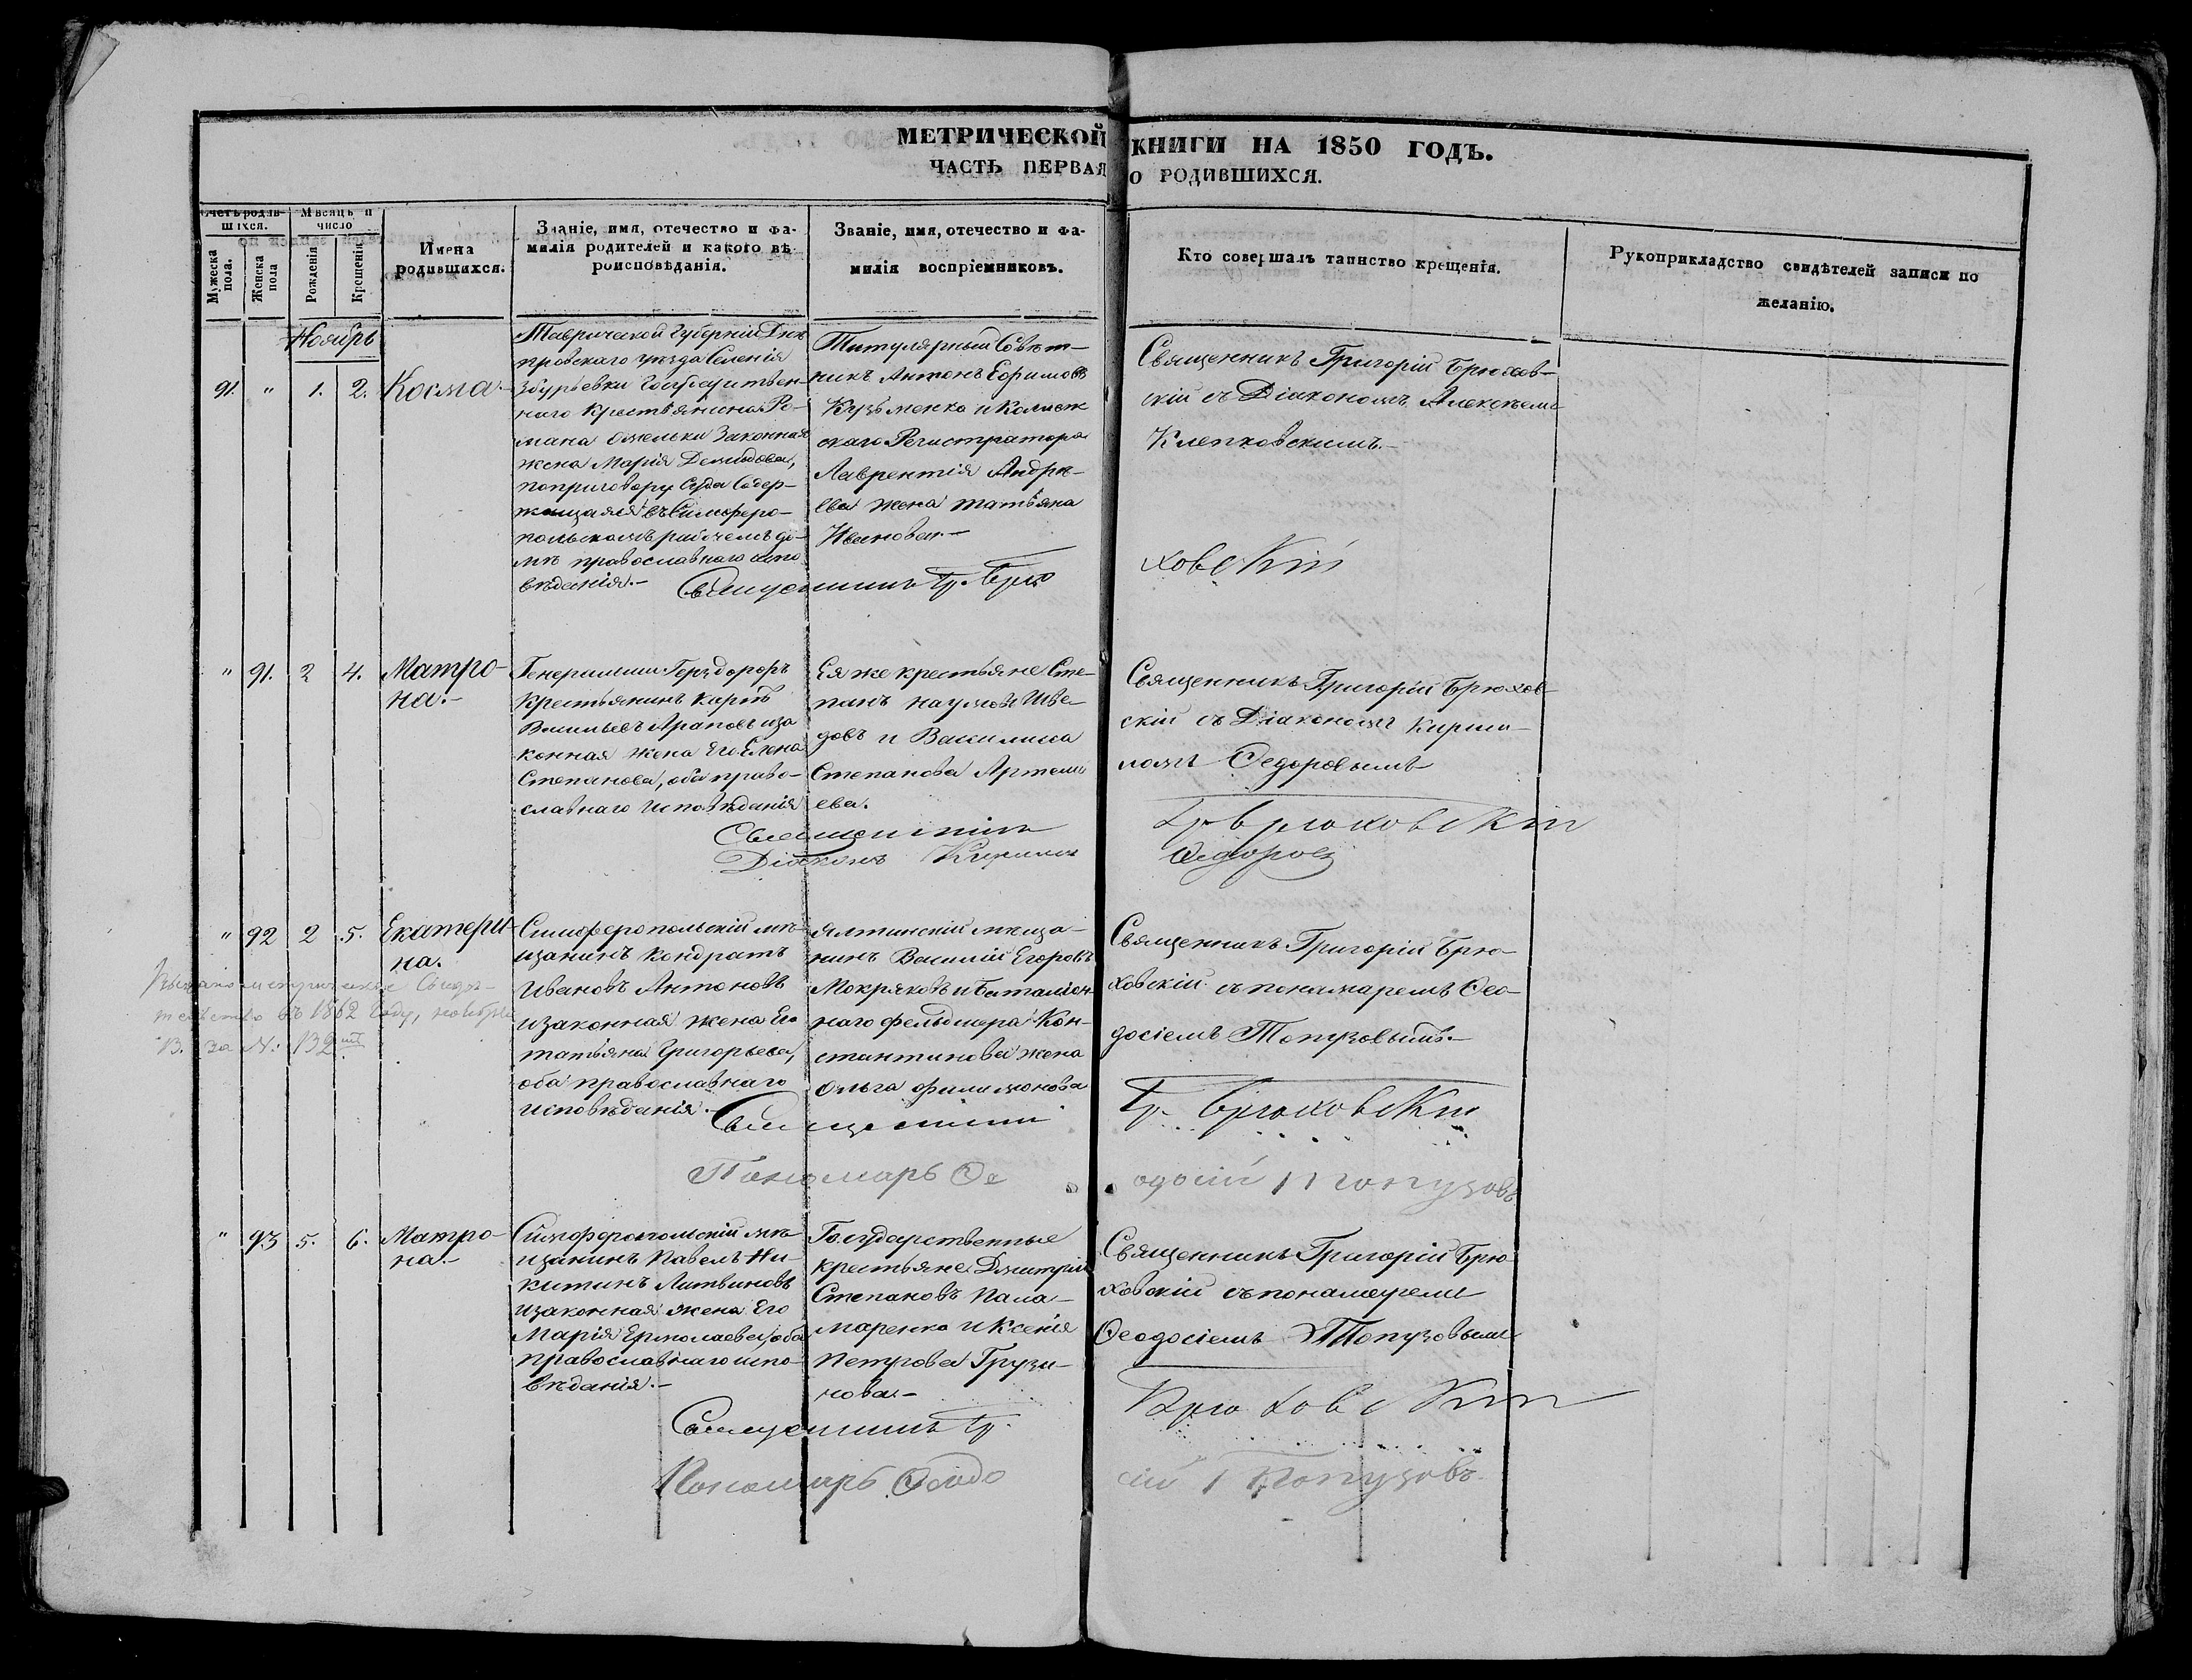 МЕТРИЧЕСКОЙ КНИГИ НА 1850 ГОДЪ.
ЧАСТЬ ПЕРВАЯ О РОДИВШИХСЯ.
Счетъ родив-
шихся.
Мужеска пола.
Женска пола
Мѣсяцъ и
число
Рожденія
Крещенія
Имена
родившихся.
Званіе, имя, отечество и фа-
милія родителей и какого вѣ-
роисповѣданія.
Званіе, имя, отечество и фа-
милія воспріемниковъ.
Кто совершалъ таинство крещенія.
Рукоприкладство свидѣтелей записи по
желанію.
Ноябрь
91. " 1. 2. Косма.-
Таврической Губерніи Днѣ
провскаго уѣзда Селенія
Збурьевки Государствен-
наго крестьянина Ро-
мана Омельки Законная
жена Марія Демидова,
по приговору Суда Содер-
жащаяся въ Симферо-
польскомъ рабочемъ до-
мѣ православнаго испо
вѣданія.-
Титулярный Совѣт-
никъ Антонъ Ефимовъ
Кузьменко и Колеж
скаго Регистратора
Лаврентія Андрѣ-
ева жена Татьяна
Иванова.-
Священникъ Григорій Брюхов-
скій съ Діакономъ Алексѣемъ
Клепковскимъ.-
Священникъ Гр. Брю
ховскій
" 91. 2 4. Матро-
на.-
Генеральши
Крестьянинъ Карпъ
Васильевъ Араповъ и за
конная жена Его Елена
Степанова, оба право-
славнаго исповѣданія
Ея же крестьяне Сте-
панъ Наумовъ Шве-
довъ и Василиса
Степанова Артемь
ева.
Священникъ Григорій Брюхов-
скій съ Діакономъ Кирил-
ломъ Федоровымъ
Священникъ Гр. Брюховскій
Діаконъ Кириллъ Федоровъ
" 92 2 5. Екатери-
на.
Симферопольскій мѣ-
щанинъ Кондратъ
Ивановъ Антоновъ
и законная жена Его
Татьяна Григорьева,
оба православнаго
исповѣданія.-
Ялтинскій мѣща-
нинъ Василій Егоровъ
Мокряковъ и Баталіон-
наго фельдшера Кон-
стантинова жена
Ольга Филимонова
Священникъ Григорій Брю-
ховскій съ понамаремъ Ѳео-
досіемъ Топузовымъ.-
метрическое Свидѣ-
тельство въ 1862 году, ноября
13. за №: 132
Священникъ Гр. Брюховскій
Пономарь Ѳе одосій Топузовъ
" 93 5. 6. Матро-
на.-
Симферопольскій мѣ-
щанинъ Павелъ Ни-
китинъ Литвиновъ
и законная жена Его
Марія Ермолаева, оба
православнаго испо-
вѣданія.-
Государственные
крестьяне Дмитрій
Степановъ Пала-
маренко и Ксенія
Петрова Грузи-
нова.-
Священникъ Григорій Брю
ховскій съ понамаремъ
Ѳеодосіемъ Топузовымъ
Священникъ Гр. Брюховскій
Пономарь Ѳеодо сій Топузовъ